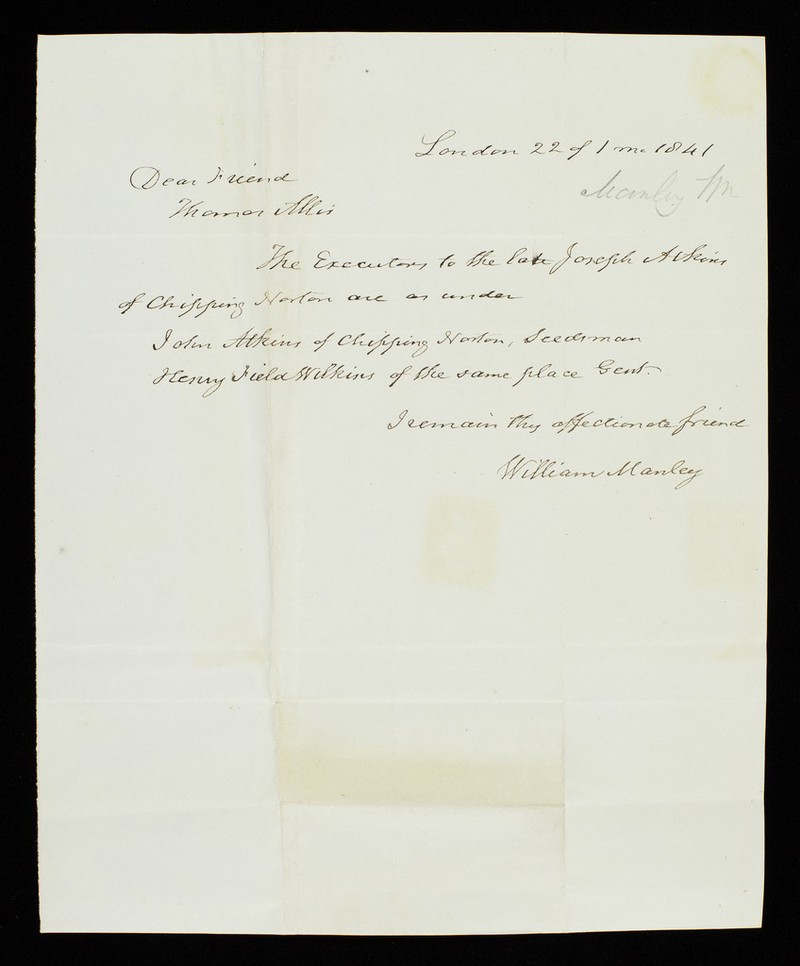 London 22 of 1 mo. 1841
Manley Wm
Dear Friend
Thomas Allis
The Executors to the late Joseph Atkins
of Chipping Norton are as under
John Atkins of Chipping Norton, Seedsman
Henry Field Wilkins of the same place Gent.
I remain thy affectionate friend
William Manley